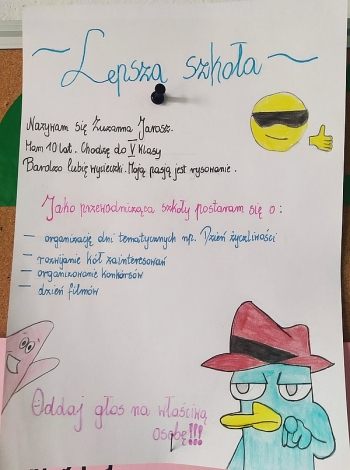 ~ Lepsza szkoła ~
Nazywam się Zuzanna Jarosz.
Mam 10 lat. Chodzę do V klasy
Bardzo lubię wycieczki. Moją pasją jest rysowanie.
Jako przewodnicząca szkoły postaram się o:
— organizację dni tematycznych np. Dzień życzliwości
— rozwijanie kół zainteresowań
— organizowanie konkursów
— dzień filmów
Oddaj głos na właściwą
osobę!!!